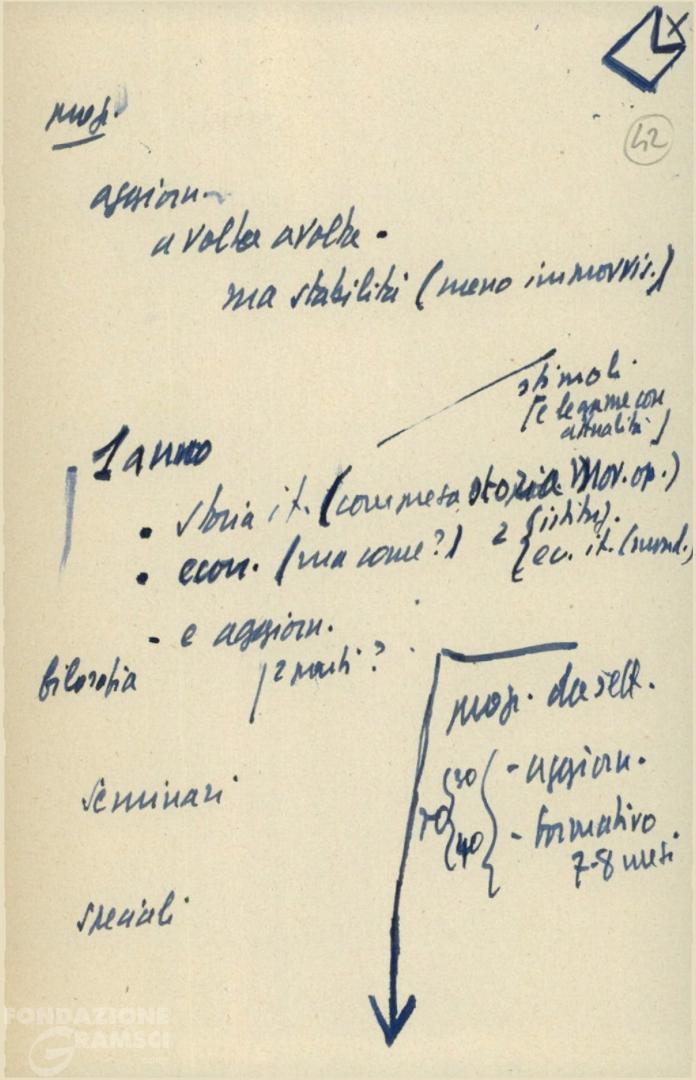 X
42
progr.
aggiorn.
a volta a volta.
ma stabilità (meno improvvis.)
stimoli
[e legame con
attualità]
1 anno
• storia it. (compresa storia Mov. op.)
• econ. (ma come?) 2 { istituz.
ec. it. (mond.)
- e aggiorn.
filosofia
seminari
speciali
progr. da sett.
70 { 30 { - aggiorn.
40 - formativo
7-8 mesi
FONDAZIONE
GRAMSCI